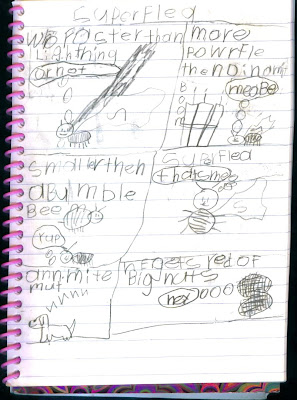 Superflea
who Faster than
Lighthing
or not
more
Powrfle
then Dinamit
BOOM
meaBe
smaller then
a bumble
Bee
Yup
Superflea
thatsme
S
ann mite
mut
HE Gets red OF
Big nuts
hey